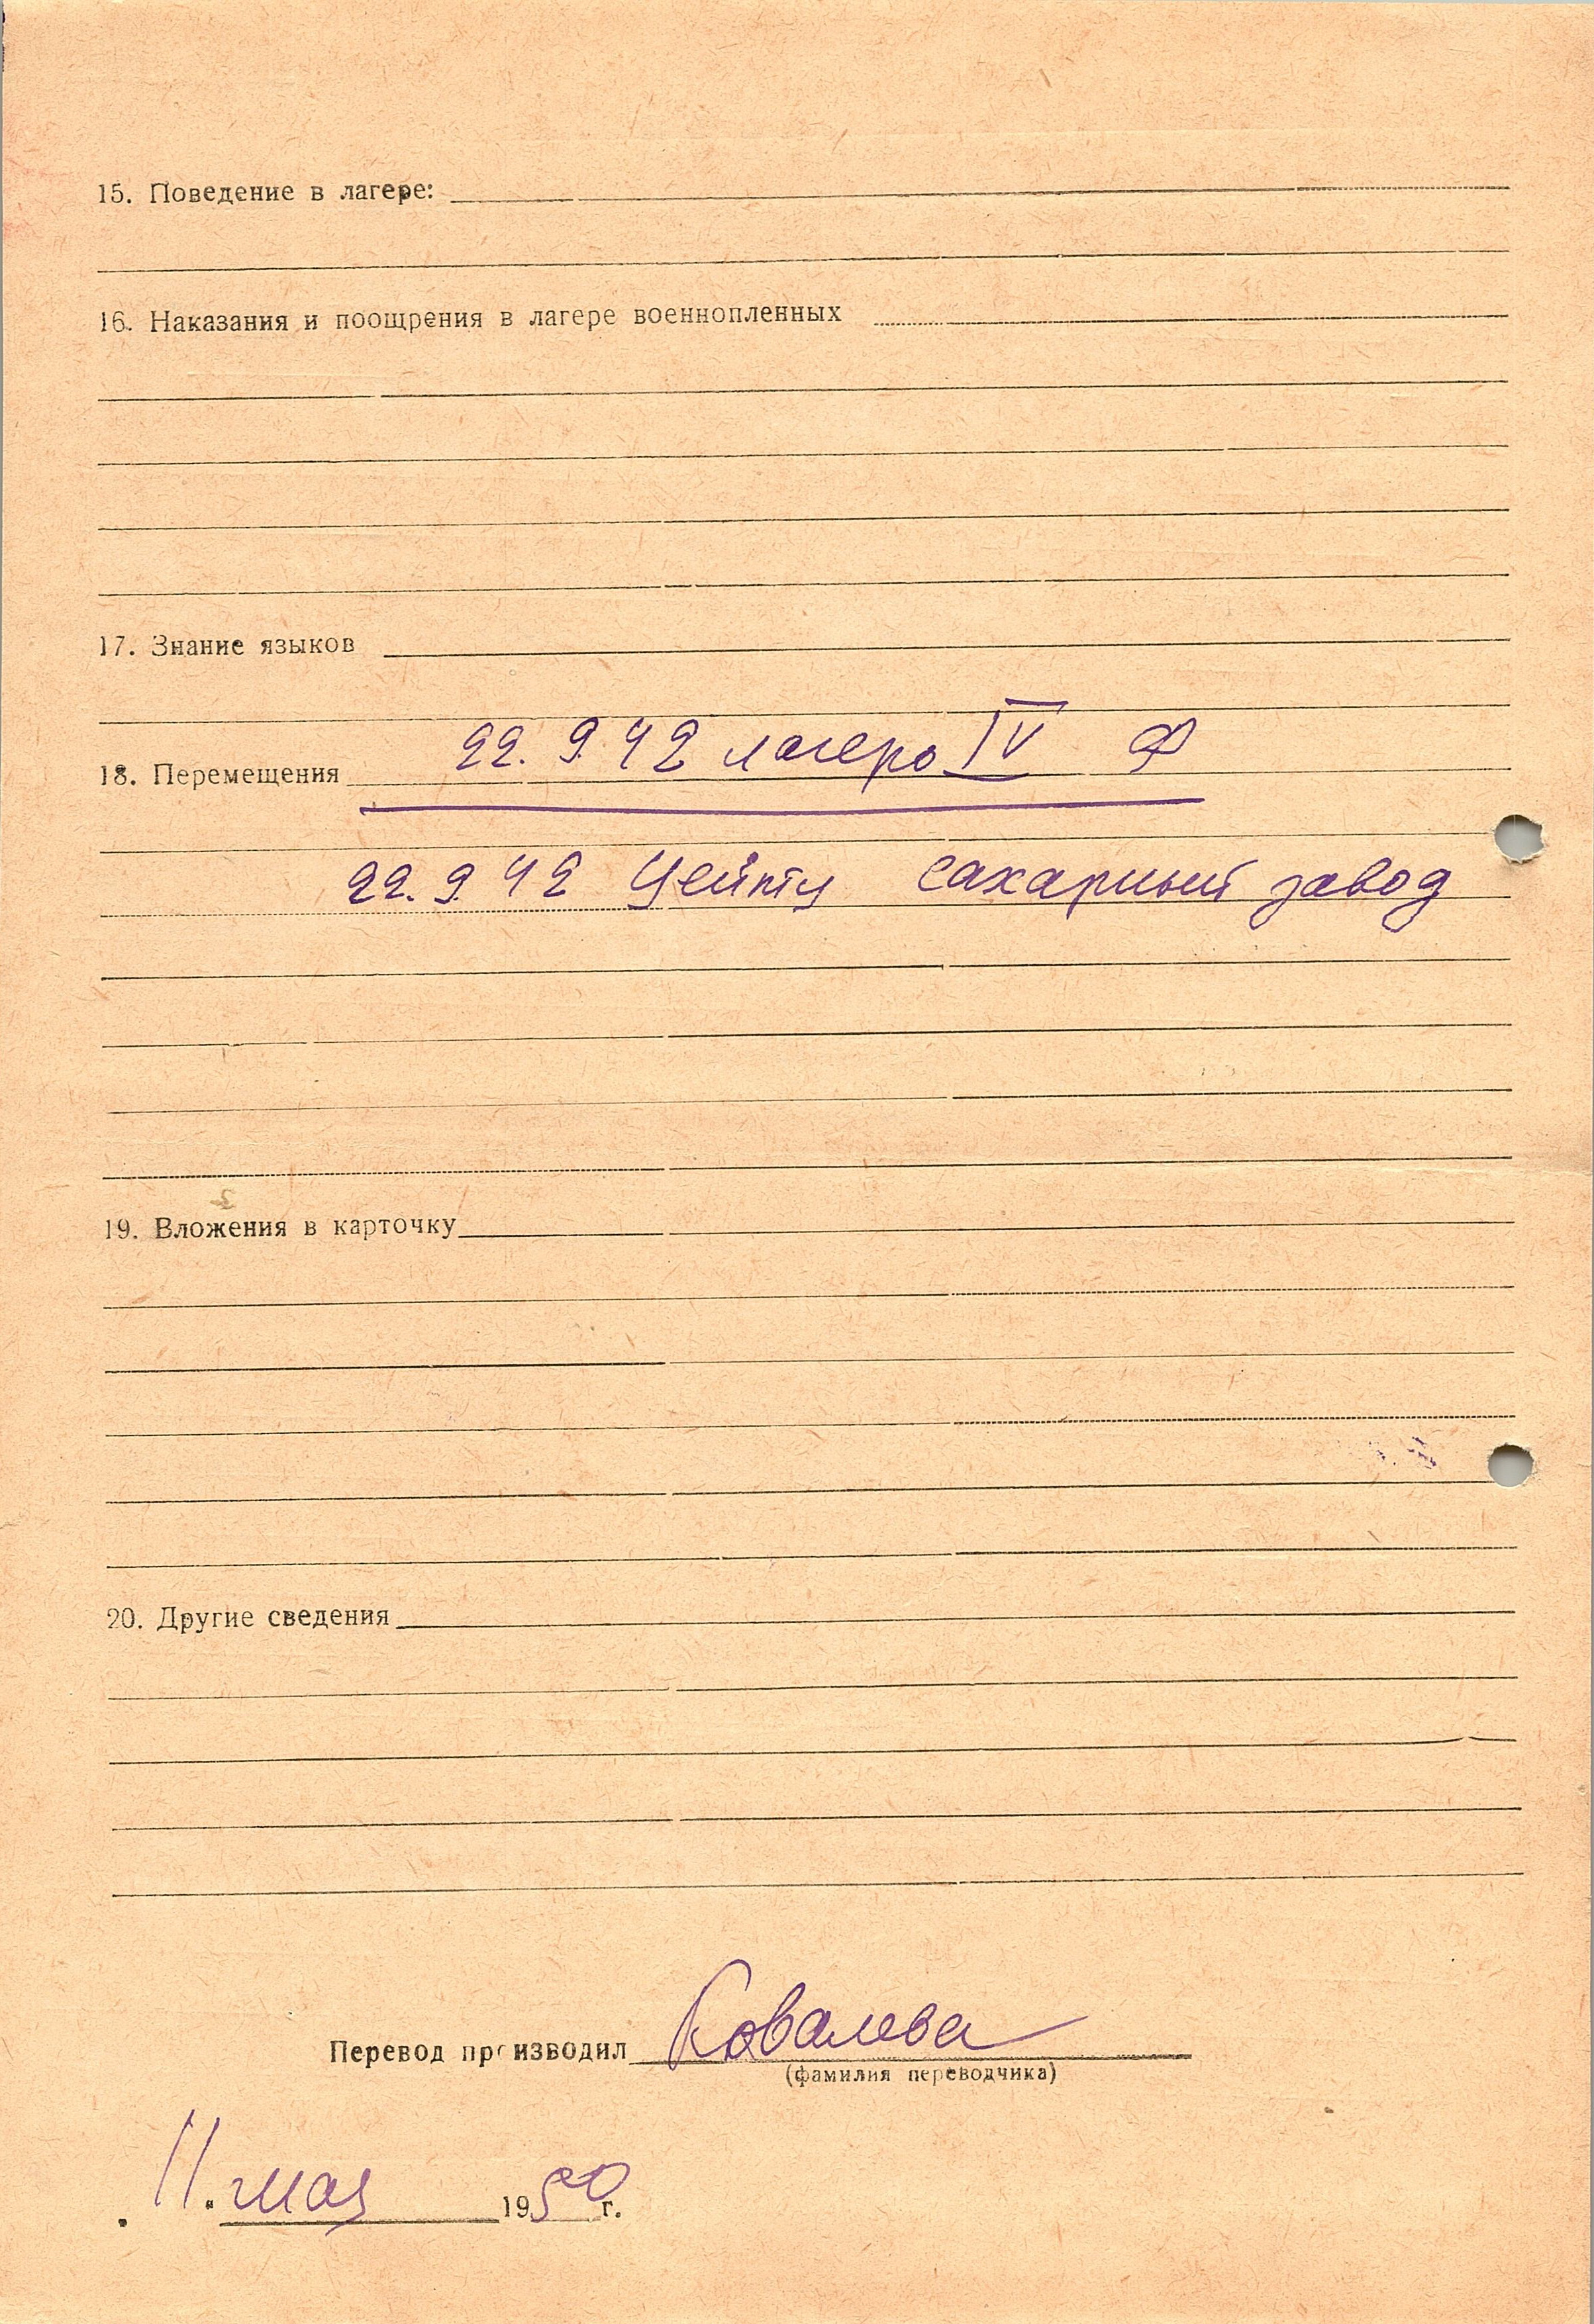 15. Поведение в лагере:
16. Наказания и поощрения в лагере военнопленных
17. Знание языков
22. 9. 42 лагерь IV Ф
18. Перемещения
22. 9. 42 Цейтц сахарный завод
19. Вложения в карточку
20. Другие сведения
Перевод производил Ковалева
(фамилия переводчика)
11. мая 1950 г.